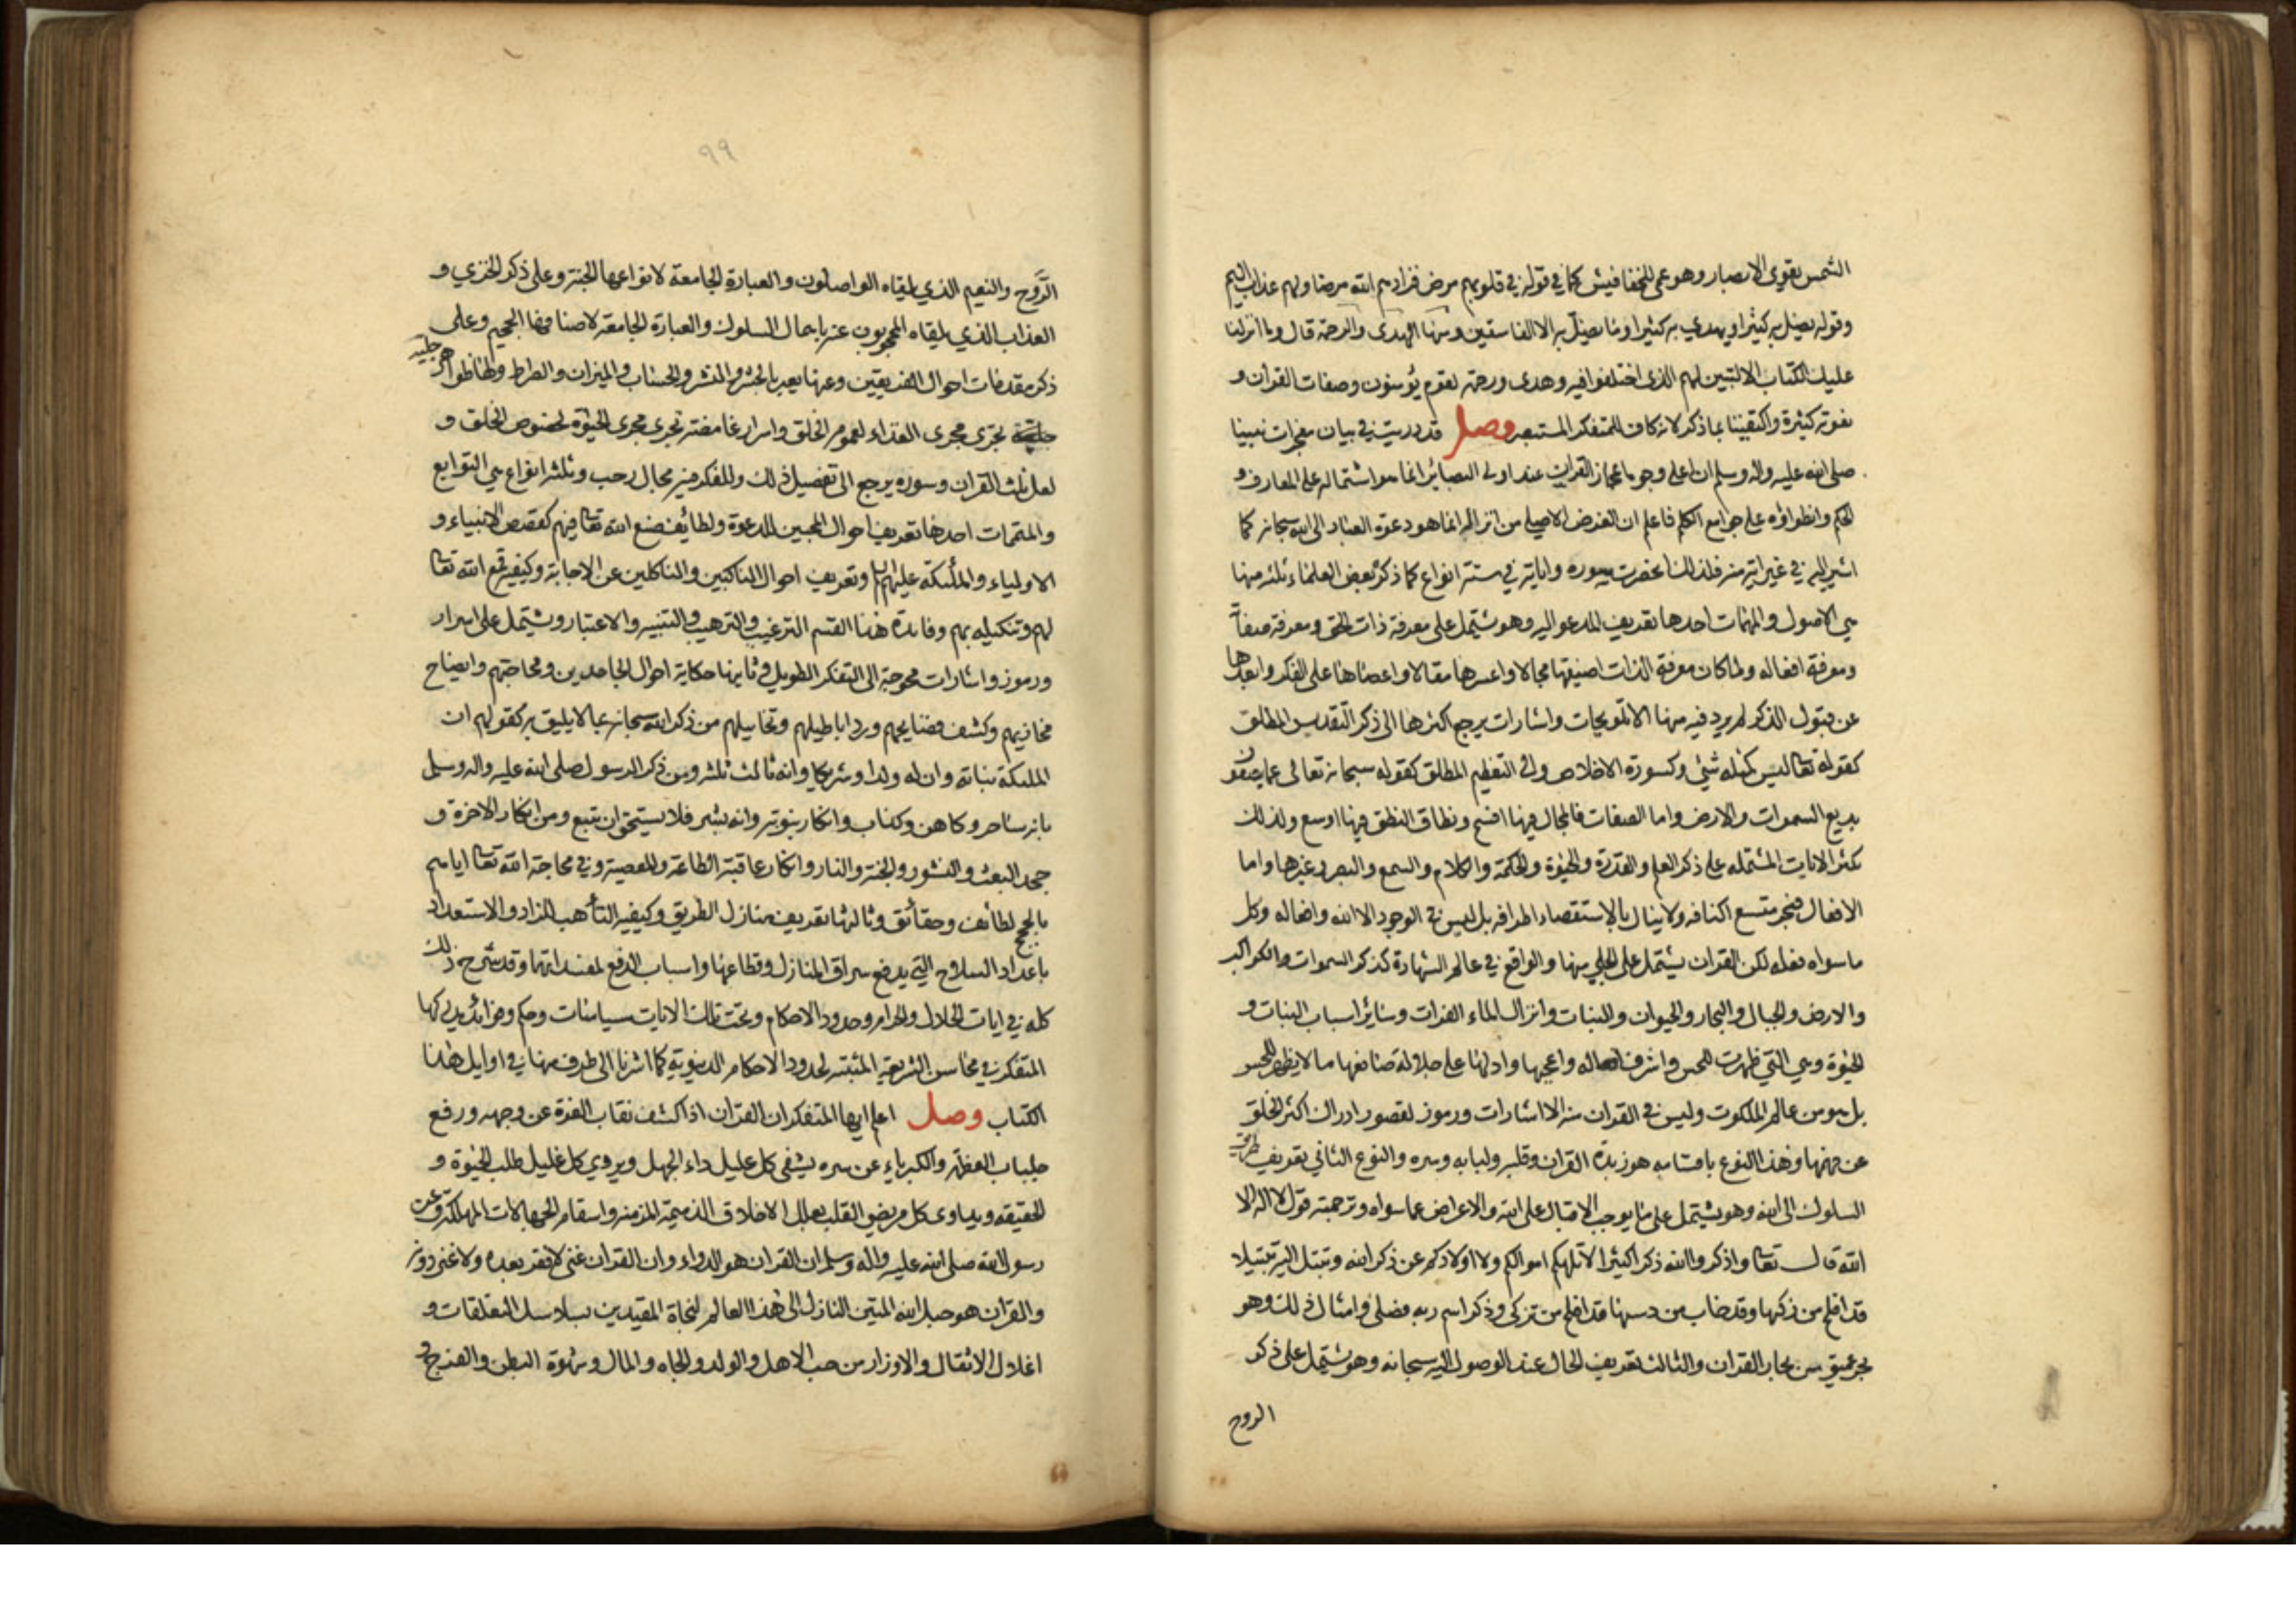 الشمس يقوي الابصار وهو عمى للخفافيش كما في قوله في قلوبهم مرض فزادهم الله مرضا ولهم عذاب اليم
وقوله يضل به كثيرا ويهدي به كثيرا وما يضل به الا الفاسقين ومنها الهدى والرحمة قال وما انزلنا
عليك الكتاب الا لتبين لهم الذى اختلفوا فيه وهدى ورحمة لقوم يؤمنون وصفات القران و
نعوته كثيرة واكتفينا بما ذكر لانه كاف للمتفكر المستبصر وصل قد دريت في بيان معجزات نبينا
صلى الله عليه واله وسلم ان اعلى وجوه اعجاز القران عند اولى البصائر انما هو اشتماله على المعارف و
الحكم وانطواؤه على جوامع الكلم فاعلم ان الغرض الاصلي من انزاله انما هو دعوة العباد الى الله سبحانه كما
اشير اليه في غير اية منه فلذلك انحصرت سوره واياته في ستة انواع كما ذكره بعض العلماء ثلثه منها
هي الاصول والمهمات احدها تعريف المدعو اليه وهو يشتمل على معرفة ذات الحق ومعرفة صفاته
ومعرفة افعاله ولما كان معرفة الذات اضيقها مجالا واعسرها مقالا واعصاها على الفكر وابعدها
عن قبول الذكر لم يرد فيه منها الا تلويحات واشارات يرجع اكثرها الى ذكر التقديس المطلق
كقوله تعا ليس كمثله شيئ وكسورة الاخلاص والى التعظيم المطلق كقوله سبحانه تعالى عما يصفون
بديع السموات والارض واما الصفات فالمجال فيها افسح ونطاق النطق فيها اوسع ولذلك
كثر الايات المشتمله على ذكر العلم والقدرة والحيوة والحكمة والكلام والسمع والبصر وغيرها واما
الافعال فبحر متسع اكنافه ولا ينال بالاستقصاء اطرافه بل ليس في الوجود الا الله وافعاله وكل
ما سواه فعله لكن القران يشتمل على الجلي منها والواقع في عالم الشهادة كذكر السموات والكواكب
والارض والجبال والبحار والحيوان والنبات وانزال الماء الفرات وسائر اسباب النبات و
الحيوة وهي التي ظهرت للحس واشرف افعاله واعجبها وادلها على جلالة صانعها ما لا يظهر للحس
بل هو من عالم الملكوت وليس في القران منه الا اشارات ورموز لقصور ادراك اكثر الخلق
عن فهمها وهذا النوع باقسامه هو زبدة القران وقلبه ولبابه وسره والنوع الثاني تعريف طريق
السلوك الى الله وهو يشتمل على ما يوجب الاقبال على الله والاعراض عما سواه وترجمته قول لا اله الا
الله قال تعا واذكروا الله ذكرا كثيرا لا تلهكم اموالكم ولا اولادكم عن ذكر الله وتبتل اليه تبتيلا
قد افلح من زكيها وقد خاب من دسيها قد افلح من تزكى وذكر اسم ربه فصلى وامثال ذلك وهو
بحر عميق من بحار القران والثالث تعريف الحال عند الوصول اليه سبحانه وهو يشتمل على ذكر
الروح
٩٩
الرَّوح والنعيم الذي يلقاه الواصلون والعبارة الجامعة لانواعها الجنة وعلى ذكر الخزي و
العذاب الذي يلقاه المحجوبون عنه باهمال السلوك والعبارة الجامعة لاصنافها الجحيم وعلى
ذكر مقدمات احوال الفريقين وعنها يعبر بالحشر والنشر والحساب والميزان والصراط ولها ظواهر جلية
تجرى مجرى الغذاء لعموم الخلق واسرار غامضة تجرى مجرى الحيوة لخصوص الخلق و
لعل ثلث القران وسوره يرجع الى تفصيل ذلك وللفكر فيه مجال رحب وثلثة انواع هي التوابع
والمتممات احدها تعريف احوال المجيبين للدعوة ولطائف صنع الله تعا فيهم كقصص الانبياء و
الاولياء والملئكة عليهم السلام وتعريف احوال الناكبين والناكلين عن الاجابة وكيفية قمع الله تعا
لهم وتنكيله بهم وفائدة هذا القسم الترغيب والترهيب والتنبيه والاعتبار ويشتمل على اسرار
ورموز واشارات محوجة الى التفكر الطويل وثانيها حكاية احوال الجاحدين ومحاجتهم وايضاح
مخازيهم وكشف فضايحهم ورد اباطيلهم وتخاييلهم من ذكر الله سبحانه بما لا يليق به كقولهم ان
الملئكة بناته وان له ولدا وشريكا وانه ثالث ثلثة ومن ذكر الرسول صلى الله عليه واله وسلم
بانه ساحر وكاهن وكذاب وانكار نبوته وانه بشر فلا يستحق ان يتبع ومن انكار الاخرة و
جحد البعث والنشور والجنة والنار وانكار عاقبة الطاعة والمعصية وفي محاجة الله تعا اياهم
بالحجج لطائف وحقائق وثالثها تعريف منازل الطريق وكيفيه التأهب للزاد والاستعداد
باعداد السلاح التي يدفع سراق المنازل وقطاعها واسباب الدفع لمفسداتها وقد شرح ذلك
كله في ايات الحلال والحرام وحدود الاحكام وتحت تلك الايات سياسات وحكم وفوائد يدركها
المتفكر في محاسن الشريعة المثبتة لحدود الاحكام الدنيوية كما اشرنا الى طرف منها في اوايل هذا
الكتاب وصل اعلم ايها المتفكر ان القران اذا كشف نقاب العزة عن وجهه ورفع
جلباب العظمة والكبرياء عن سره يشفى كل عليل داء الجهل ويروى كل غليل طلب الحيوة و
الحقيقه ويداوى كل مريض القلب بعلل الاخلاق الذميمة المزمنه واسقام الجهالات المهلكة وعن
رسول الله صلى الله عليه واله وسلم ان القران هو الدواء وان القران غنى لا فقر بعده ولا غنى دونه
والقران هو حبل الله المتين النازل الى هذا العالم لنجاة المقيدين بسلاسل التعلقات و
اغلال الاثقال والاوزار من حب الاهل والولد والجاه والمال وشهوة البطن والفرج و